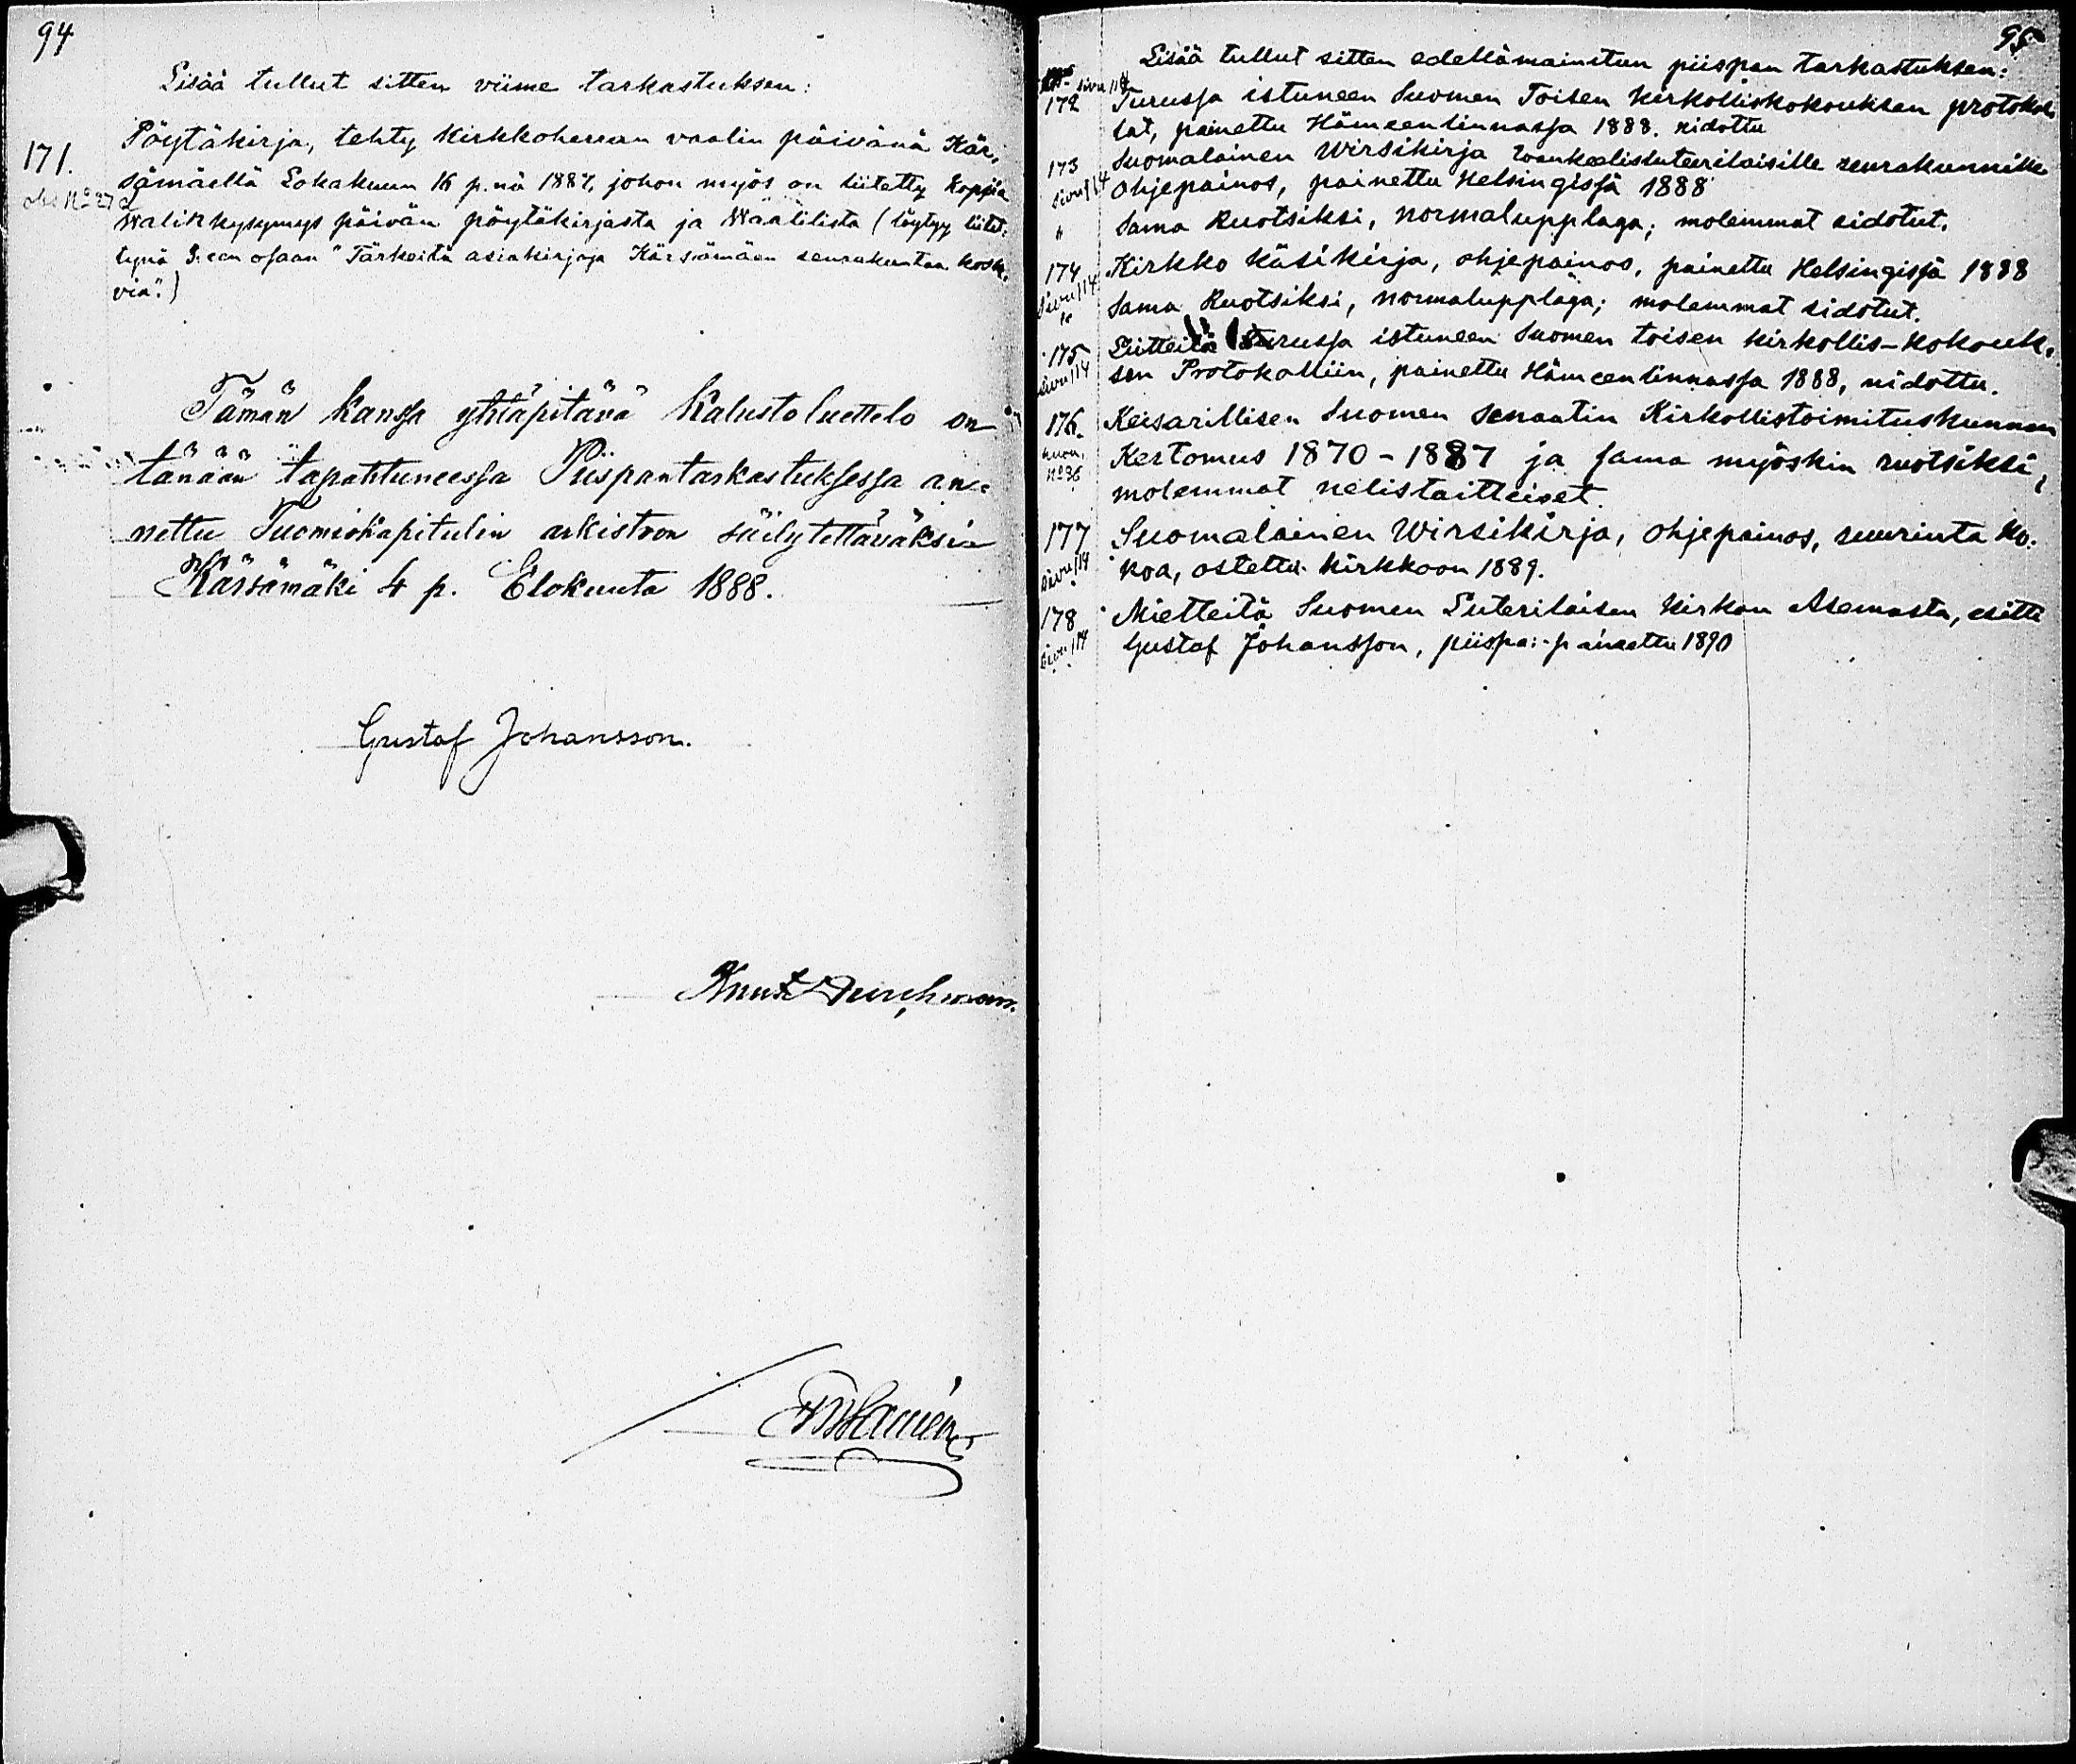 94
Lisää tullut sitten viime tarkastuksen:
171. Pöytäkirja, tehty kirkkoherran vaalin päivänä Kär,
sämäellä Lokakuun 16 p.nä 1887, johon myös on liitetty Koppia
Walitkysymys päivän pöytäkirjasta ja Waalilista (löytyy liitet,
tynä 3:een osaan "Tärkeitä asiakirjoja Kärsämäen seurakuntaa kosk,
via".)
Tämän kanssa yhtäpitävä Kalustoluettelo on
tänään tapahtuneessa Piispantarkastuksessa an=
nettu Tuomiokapitulin arkistoon säilytettäväksi
Kärsämäki 4 p. Elokuuta 1888.
Gustaf Johansson.
Knut
95
Lisää tullut sitten edellämainitun piispan tarkastuksen:
sivu 114
172 Turussa istuneen Suomen Toisen Kirkolliskokouksen protokol,
lat, painettu Hämeenlinnassa 1888. nidottu
173 Suomalainen Wirsikirja Ewankealisluteerilaisille seurakunnille
sivu 114 ohjepainos, painettu Helsingissä 1888
" Sama Ruotsiksi, normalupplaga; molemmat sidotut.
174 Kirkko Käsikirja, ohjepainos, painettu Helsingissä 1888
sivu 114
" Sama Ruotsiksi, normalupplaga; molemmat sidotut.
175 Liitteitä Turussa istuneen Suomen toisen kirkollis-kokouk,
sivu 114 sen Protokolliin, painettu Hämeenlinnassa 1888, nidottu.
176. Keisarillisen Suomen Senaatin Kirkollistoimituskunnan
No 36 Kertomus 1870-1887 ja sama myöskin ruotsiksi,
molemmat nelistaitteiset.
177 Suomalainen Wirsikirja, ohjepainos, suurinta ko:
sivu 114 koa, ostettu kirkkoon 1889.
178 Mietteitä Suomen Luterilaisen Kirkon Asemasta, esitti
sivu 114 Gustaf Johansson, piispa:- painettu 1890